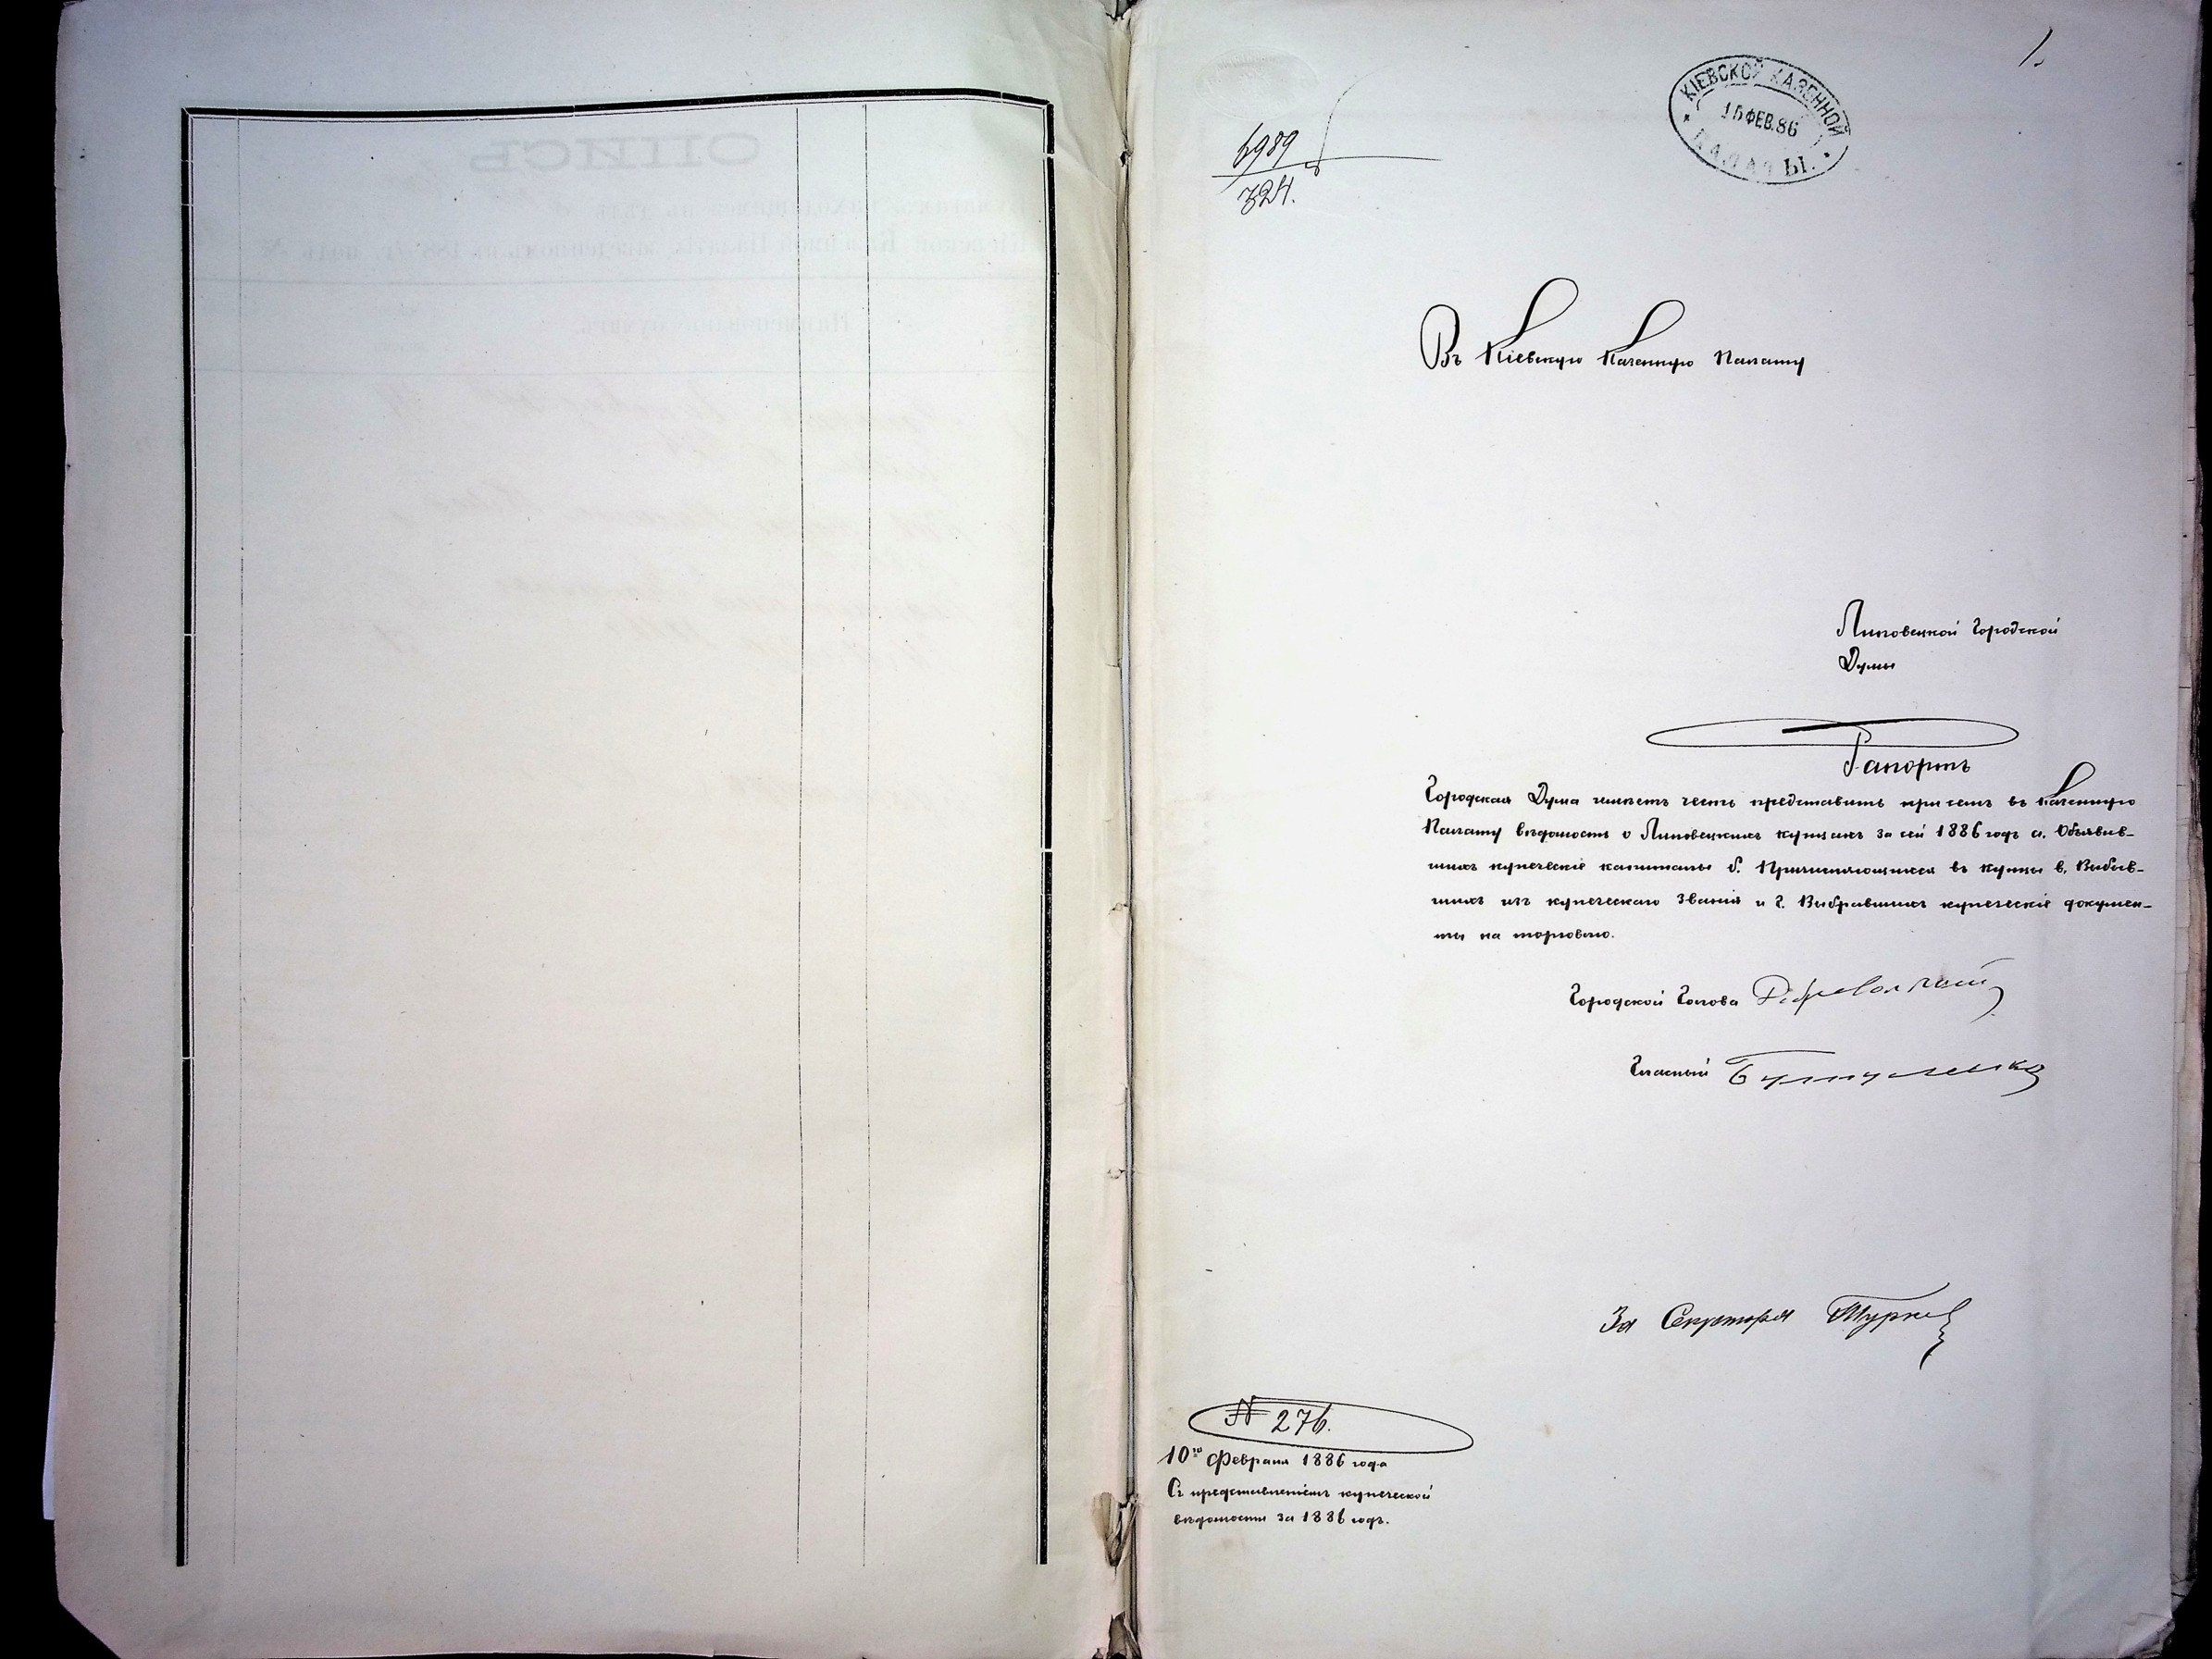 1.
КІЕВСКОЙ КАЗЕННОЙ
15 ФЕВ.86
ПАЛАТЫ.
6989
324.
Въ Кіевскую Казенную Палату
Липовецкой Городской
Думы
Рапортъ
Городская Дума имѣетъ честь представить при семъ въ Казенную
Палату вѣдомость о Липовецкихъ купцахъ за сей 1886 годъ а. Объявив-
шихъ купеческіе капиталы б. Причисляющихся въ купцы в. Выбыв-
шихъ изъ купеческаго званія и г. Выбравшихъ купеческіе докумен-
ты на торговлю.
Городской Голова
Гласный
За Секретаря
№ 276.
10го Февраля 1886 года
Съ представленіемъ купеческой
вѣдомости за 1886 годъ.